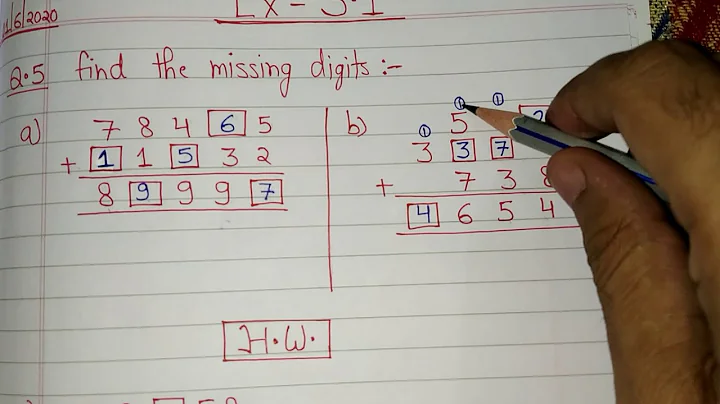 1/6/2020
Ex - 5.1
Q.5 find the missing digits :-
a) 7 8 4 6 5
+ 1 1 5 3 2
8 9 9 9 7
b) 5
3 3 7
+ 7 3 8
4 6 5 4
H.W.